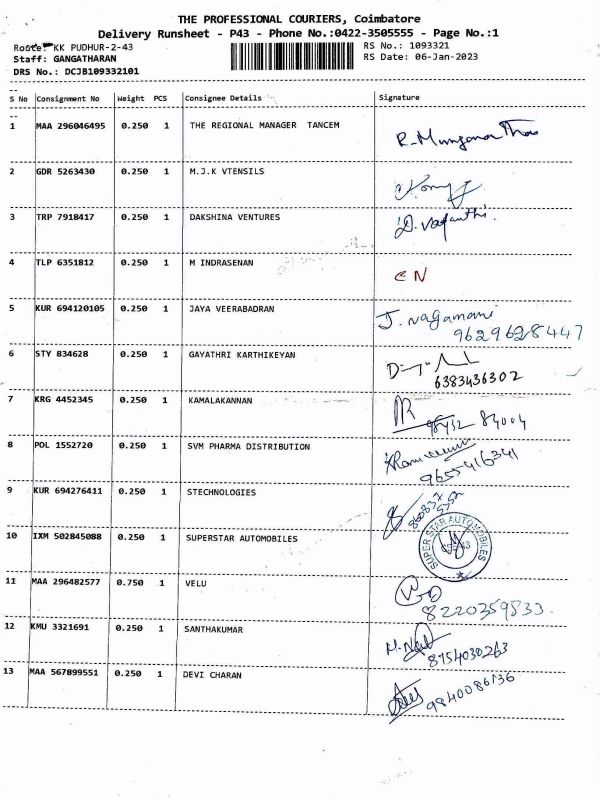 THE PROFESSIONAL COURIERS, Coimbatore
Delivery Runsheet - P43 - Phone No.:0422-3505555 - Page No.:1
Route: KK PUDHUR-2-43
RS No.: 1093321
Staff: GANGATHARAN
RS Date: 06-Jan-2023
DRS No.: DCJB109332101
S No Consignment No Weight PCS Consignee Details Signature
1 MAA 296046495 0.250 1 THE REGIONAL MANAGER TANCEM
2 GDR 5263430 0.250 1 M.J.K VTENSILS
3 TRP 7918417 0.250 1 DAKSHINA VENTURES
4 TLP 6351812 0.250 1 M INDRASENAN CN
5 KUR 694120105 0.250 1 JAYA VEERABADRAN J. Nagamani
9629628447
6 STY 834628 0.250 1 GAYATHRI KARTHIKEYAN
6383436302
7 KRG 4452345 0.250 1 KAMALAKANNAN
8 POL 1552720 0.250 1 SVM PHARMA DISTRIBUTION
9655416341
9 KUR 694276411 0.250 1 STECHNOLOGIES
10 IXM 502845088 0.250 1 SUPERSTAR AUTOMOBILES SUPER STAR AUTOMOBILES
11 MAA 296482577 0.750 1 VELU
8220359533
12 KMU 3321691 0.250 1 SANTHAKUMAR
8754030263
13 MAA 567899551 0.250 1 DEVI CHARAN
9840086736